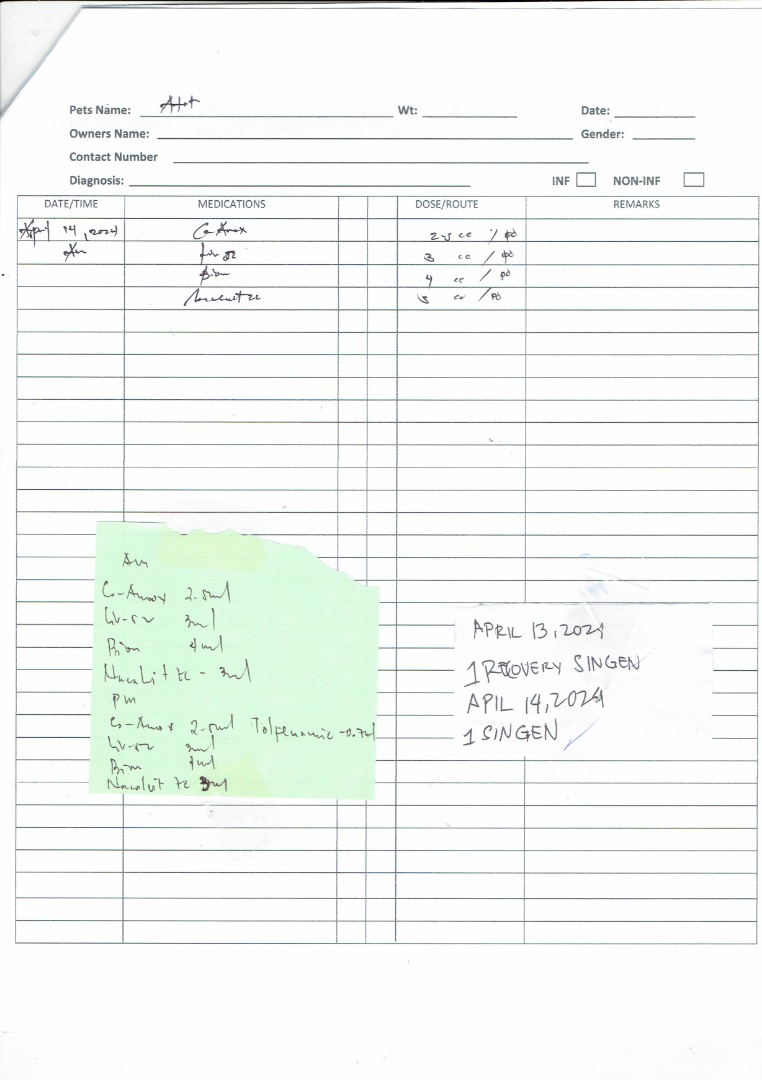 Pets Name: Wt: Date:
Owners Name: Gender:
Contact Number
Diagnosis: INF NON-INF
DATE/TIME MEDICATIONS DOSE/ROUTE REMARKS
April 14, 2024 Co-Amox 2.5 cc / PO
AM Liv 52 3 cc / PO
Bion 4 cc / PO
3 cc / PO
AM
Co-Amox 2.5ml
Liv-52 3ml
Bion 4ml
- 3ml
PM
Co-Amox 2.5ml Tolfenamic -0.7ml
Liv-52 3ml
Bion 4ml
3ml
APRIL 13, 2024
1 RECOVERY SINGEN
APIL 14, 2024
1 SINGEN